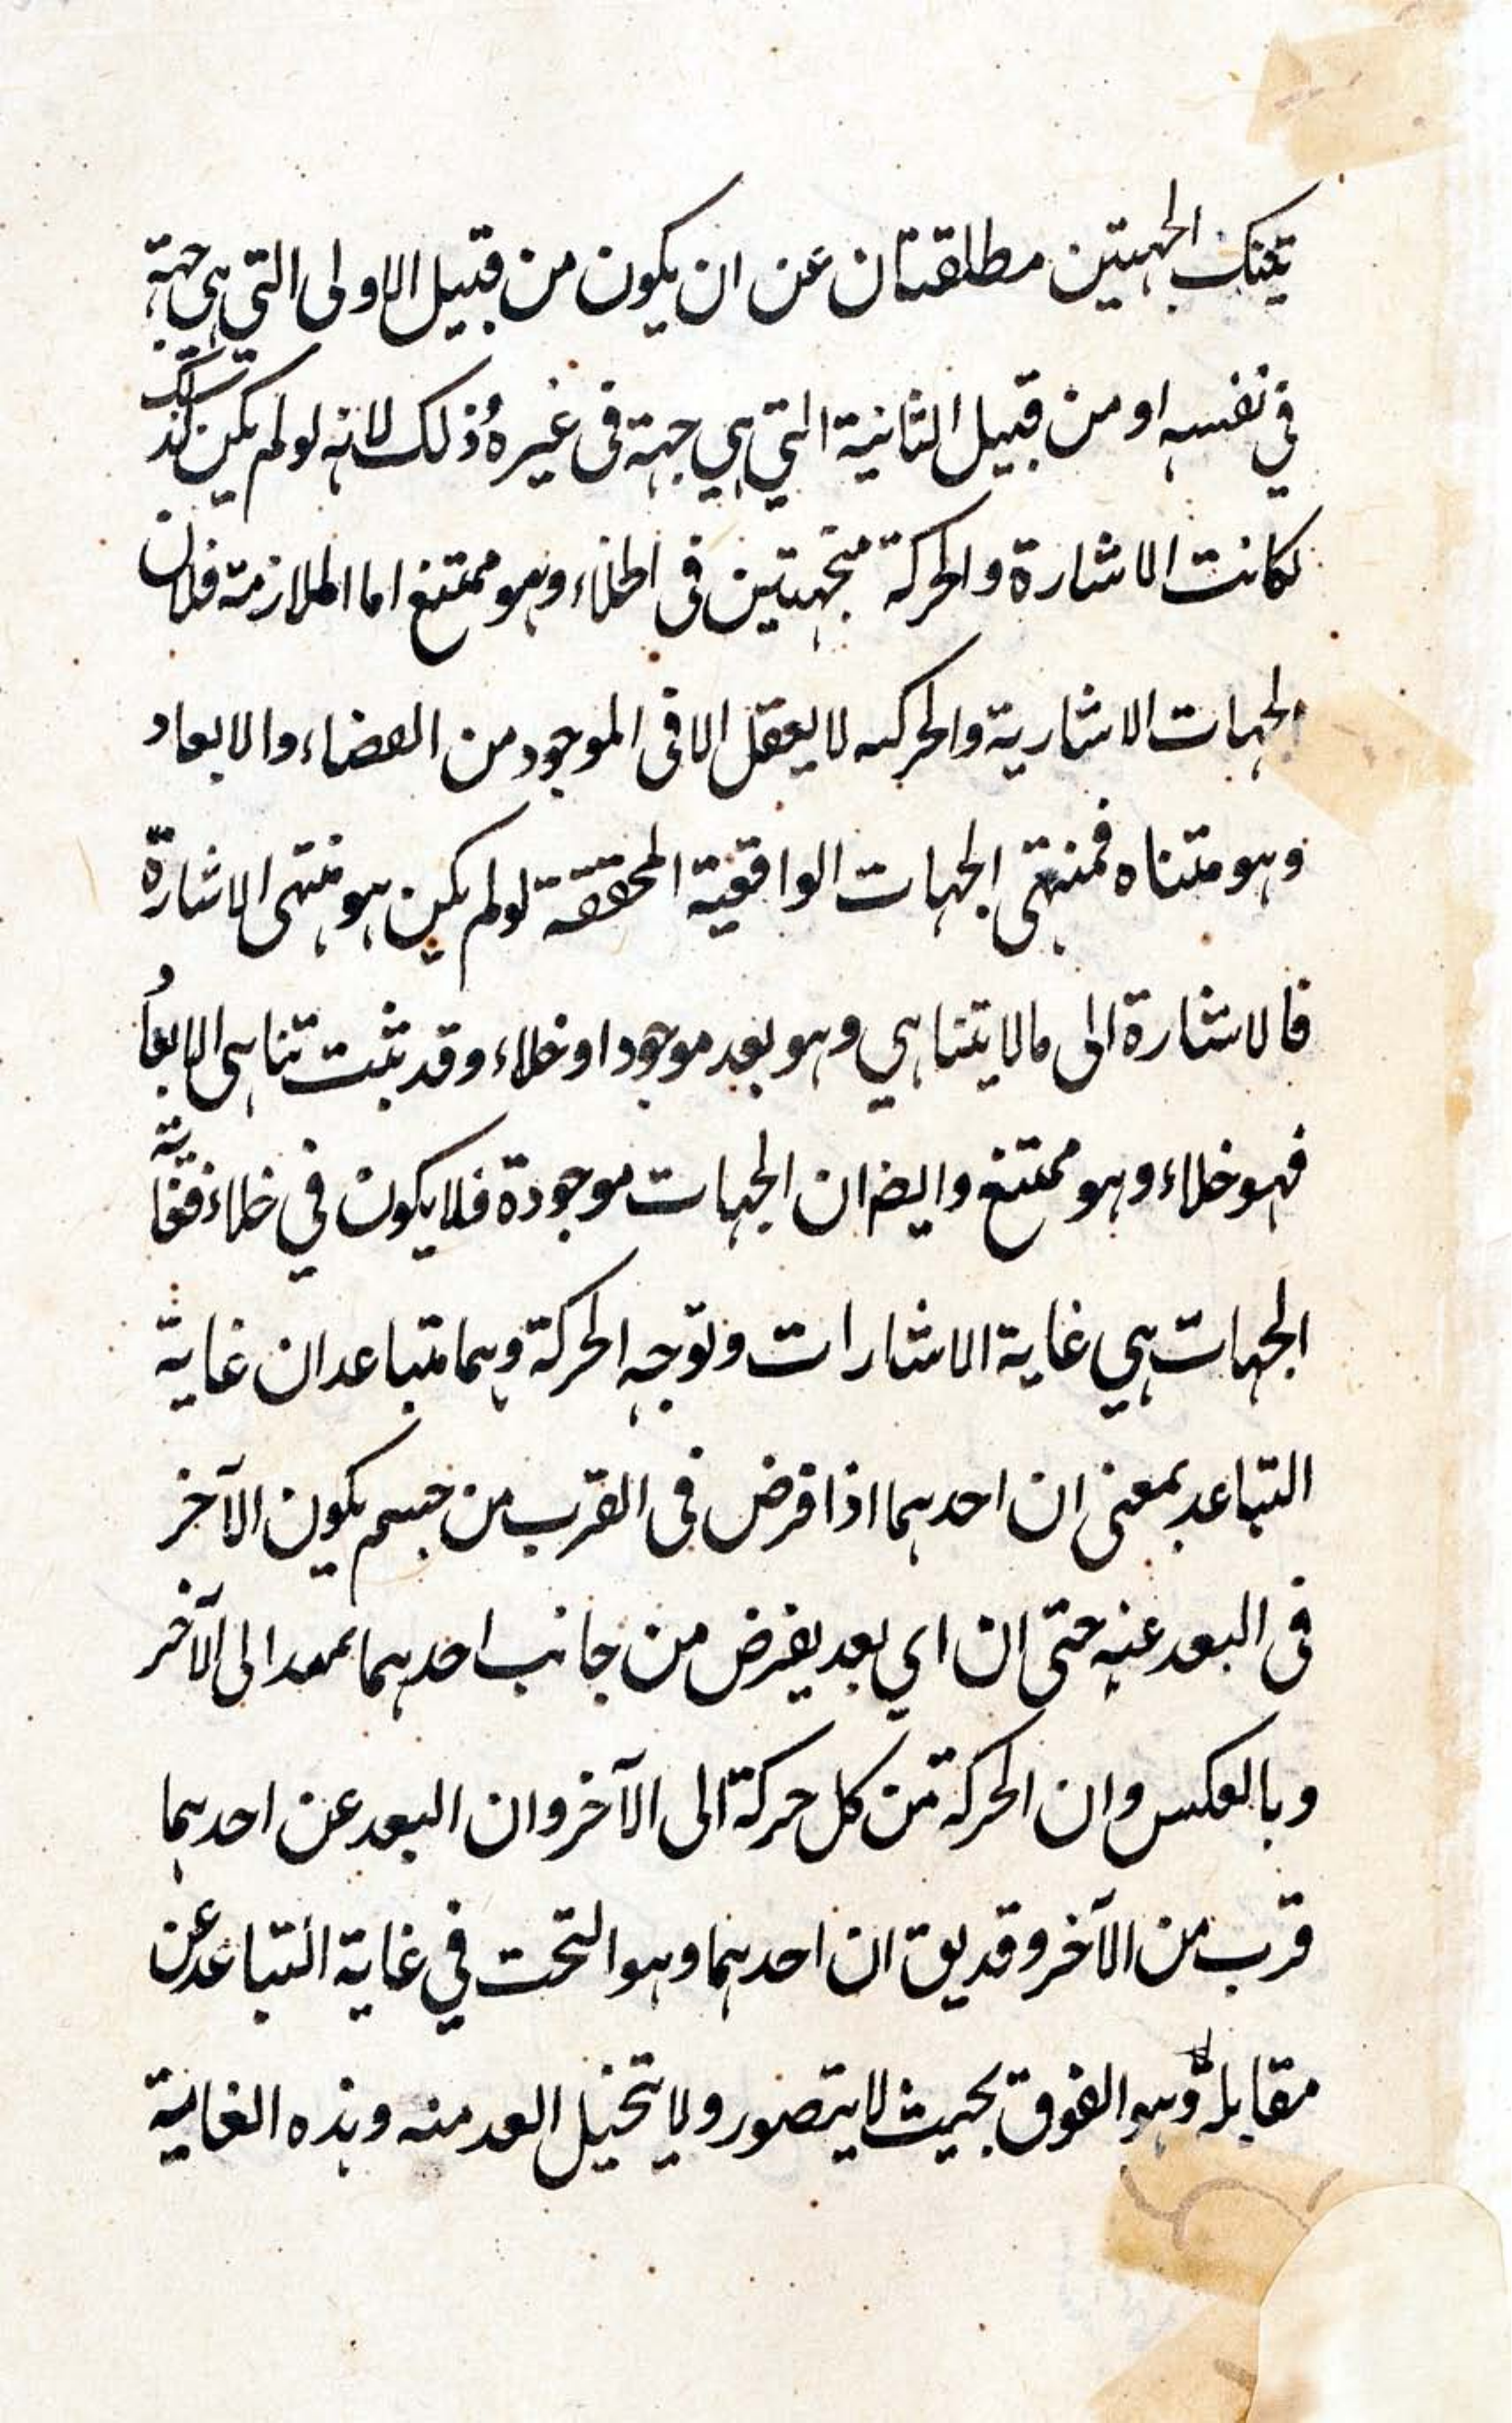 تينك الجهتين مطلقتان عن ان يكون من قبيل الاولى التي هي جهة
في نفسه او من قبيل الثانية التي هي جهة في غيره وذلك لانه لو لم يكن كذلك
لكانت الاشارة والحركة متجهتين في الخلاء وهو ممتنع اما الملازمة فلان
الجهات الاشارية والحركيه لا يعقل الا في الموجود من الفضاء والابعاد
وهو متناه فمنتهى الجهات الواقعية المحققة لو لم يكن هو منتهى الاشارة
فالاشارة الى ما لا يتناهي وهو بعد موجود او خلاء وقد ثبت تناهى الابعاد
فهو خلاء وهو ممتنع وايضا ان الجهات موجودة فلا يكون في خلاء فغاية
الجهات هي غاية الاشارات وتوجه الحركة وهما متباعدان غاية
التباعد بمعنى ان احدهما اذا فرض في القرب من جسم يكون الآخر
في البعد عنه حتى ان اي بعد يفرض من جانب احدهما يمتد الى الآخر
وبالعكس وان الحركة من كل حركة الى الآخر وان البعد عن احدهما
قرب من الآخر وقد يق ان احدهما وهو التحت في غاية التباعد عن
مقابله وهو الفوق بحيث لا يتصور ولا يتخيل ابعد منه وهذه الغاية